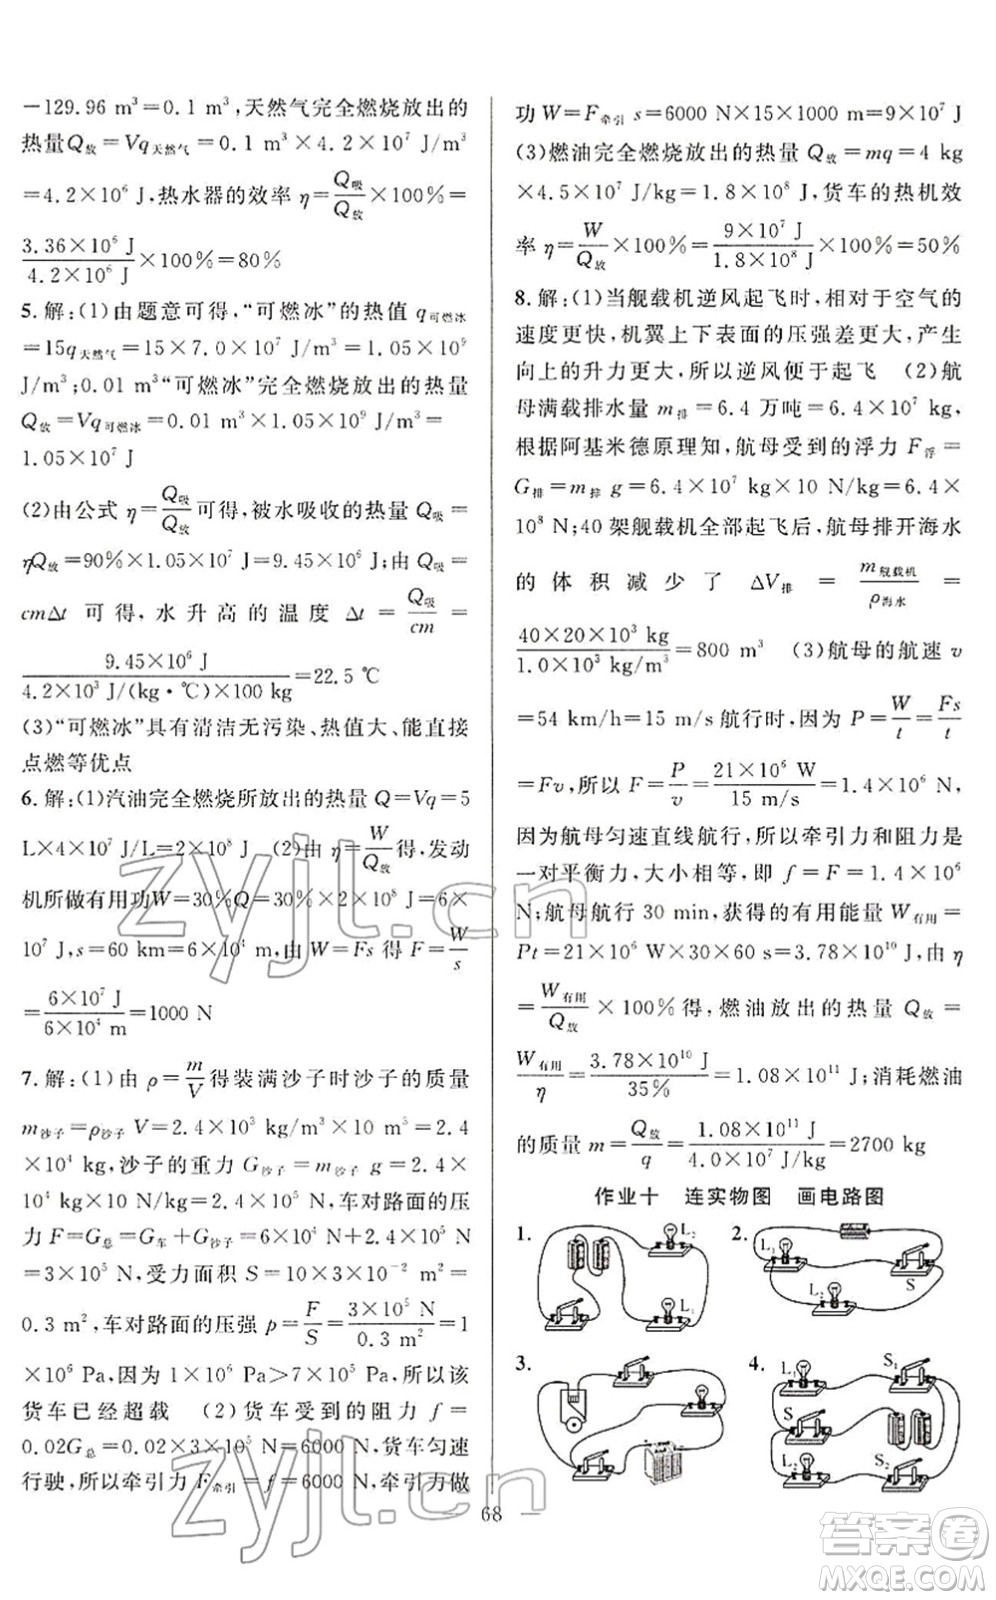 －129.96 m³＝0.1 m³,天然气完全燃烧放出的
热量Q放＝Vq天然气＝0.1 m³×4.2×10⁷ J/m³
＝4.2×10⁶ J,热水器的效率 η＝Q吸/Q放×100%＝
3.36×10⁶ J/4.2×10⁶ J×100%＝80%
5.解:(1)由题意可得,“可燃冰”的热值 q可燃冰
＝15q天然气＝15×7.0×10⁷ J/m³＝1.05×10⁹
J/m³;0.01 m³“可燃冰”完全燃烧放出的热量
Q放＝Vq可燃冰＝0.01 m³×1.05×10⁹ J/m³＝
1.05×10⁷ J
(2)由公式 η＝Q吸/Q放可得,被水吸收的热量 Q吸＝
ηQ放＝90%×1.05×10⁷ J＝9.45×10⁶ J;由 Q吸＝
cmΔt 可得,水升高的温度 Δt＝Q吸/cm＝
9.45×10⁶ J/4.2×10³ J/(kg·℃)×100 kg＝22.5 ℃
(3)“可燃冰”具有清洁无污染、热值大、能直接
点燃等优点
6.解:(1)汽油完全燃烧所放出的热量 Q＝Vq＝5
L×4×10⁷ J/L＝2×10⁸ J (2)由η＝W/Q放得,发动
机所做有用功W＝30%Q＝30%×2×10⁸ J＝6×
10⁷ J,s＝60 km＝6×10⁴ m,由 W＝Fs 得 F＝W/s
＝6×10⁷ J/6×10⁴ m＝1000 N
7.解:(1)由 ρ＝m/V得装满沙子时沙子的质量
m沙子＝ρ沙子 V＝2.4×10³ kg/m³×10 m³＝2.4
×10⁴ kg,沙子的重力 G沙子＝m沙子 g＝2.4×
10⁴ kg×10 N/kg＝2.4×10⁵ N,车对路面的压
力 F＝G总＝G车＋G沙子＝6×10⁴ N＋2.4×10⁵ N
＝3×10⁵ N,受力面积 S＝10×3×10⁻² m²＝
0.3 m²,车对路面的压强 p＝F/S＝3×10⁵ N/0.3 m²＝1
×10⁶ Pa,因为 1×10⁶ Pa＞7×10⁵ Pa,所以该
货车已经超载 (2)货车受到的阻力 f＝
0.02G总＝0.02×3×10⁵ N＝6000 N,货车匀速
行驶,所以牵引力 F牵引＝f＝6000 N,牵引力做
功 W＝F牵引 s＝6000 N×15×1000 m＝9×10⁷ J
(3)燃油完全燃烧放出的热量 Q放＝mq＝4 kg
×4.5×10⁷ J/kg＝1.8×10⁸ J,货车的热机效
率 η＝W/Q放×100%＝9×10⁷ J/1.8×10⁸ J×100%＝50%
8.解:(1)当舰载机逆风起飞时,相对于空气的
速度更快,机翼上下表面的压强差更大,产生
向上的升力更大,所以逆风便于起飞 (2)航
母满载排水量 m排＝6.4 万吨＝6.4×10⁷ kg,
根据阿基米德原理知,航母受到的浮力 F浮＝
G排＝m排 g＝6.4×10⁷ kg×10 N/kg＝6.4×
10⁸ N;40 架舰载机全部起飞后,航母排开海水
的体积减少了 ΔV排＝m舰载机/ρ海水＝
40×20×10³ kg/1.0×10³ kg/m³＝800 m³ (3)航母的航速 v
＝54 km/h＝15 m/s航行时,因为 P＝W/t＝Fs/t
＝Fv,所以 F＝P/v＝21×10⁶ W/15 m/s＝1.4×10⁶ N,
因为航母匀速直线航行,所以牵引力和阻力是
一对平衡力,大小相等,即 f＝F＝1.4×10⁶
N;航母航行 30 min,获得的有用能量 W有用＝
Pt＝21×10⁶ W×30×60 s＝3.78×10¹⁰ J,由 η
＝W有用/Q放×100%得,燃油放出的热量 Q放＝
W有用/η＝3.78×10¹⁰ J/35%＝1.08×10¹¹ J;消耗燃油
的质量 m＝Q放/q＝1.08×10¹¹ J/4.0×10⁷ J/kg＝2700 kg
作业十 连实物图 画电路图
1.
L₂
L₁
2.
L₁
L₂
S
3.
4.
L₁
S₁
S
L₂
S₂
68
zyjl.cn
zyjl.cn
答案卷
MXQE.COM